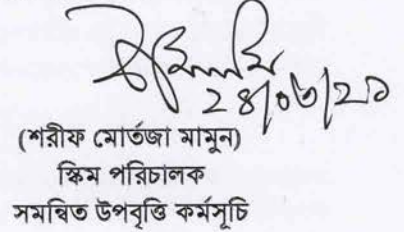 ২৪/০৬/২১
(শরীফ মোর্তজা মামুন)
স্কিম পরিচালক
সমন্বিত উপবৃত্তি কর্মসূচি